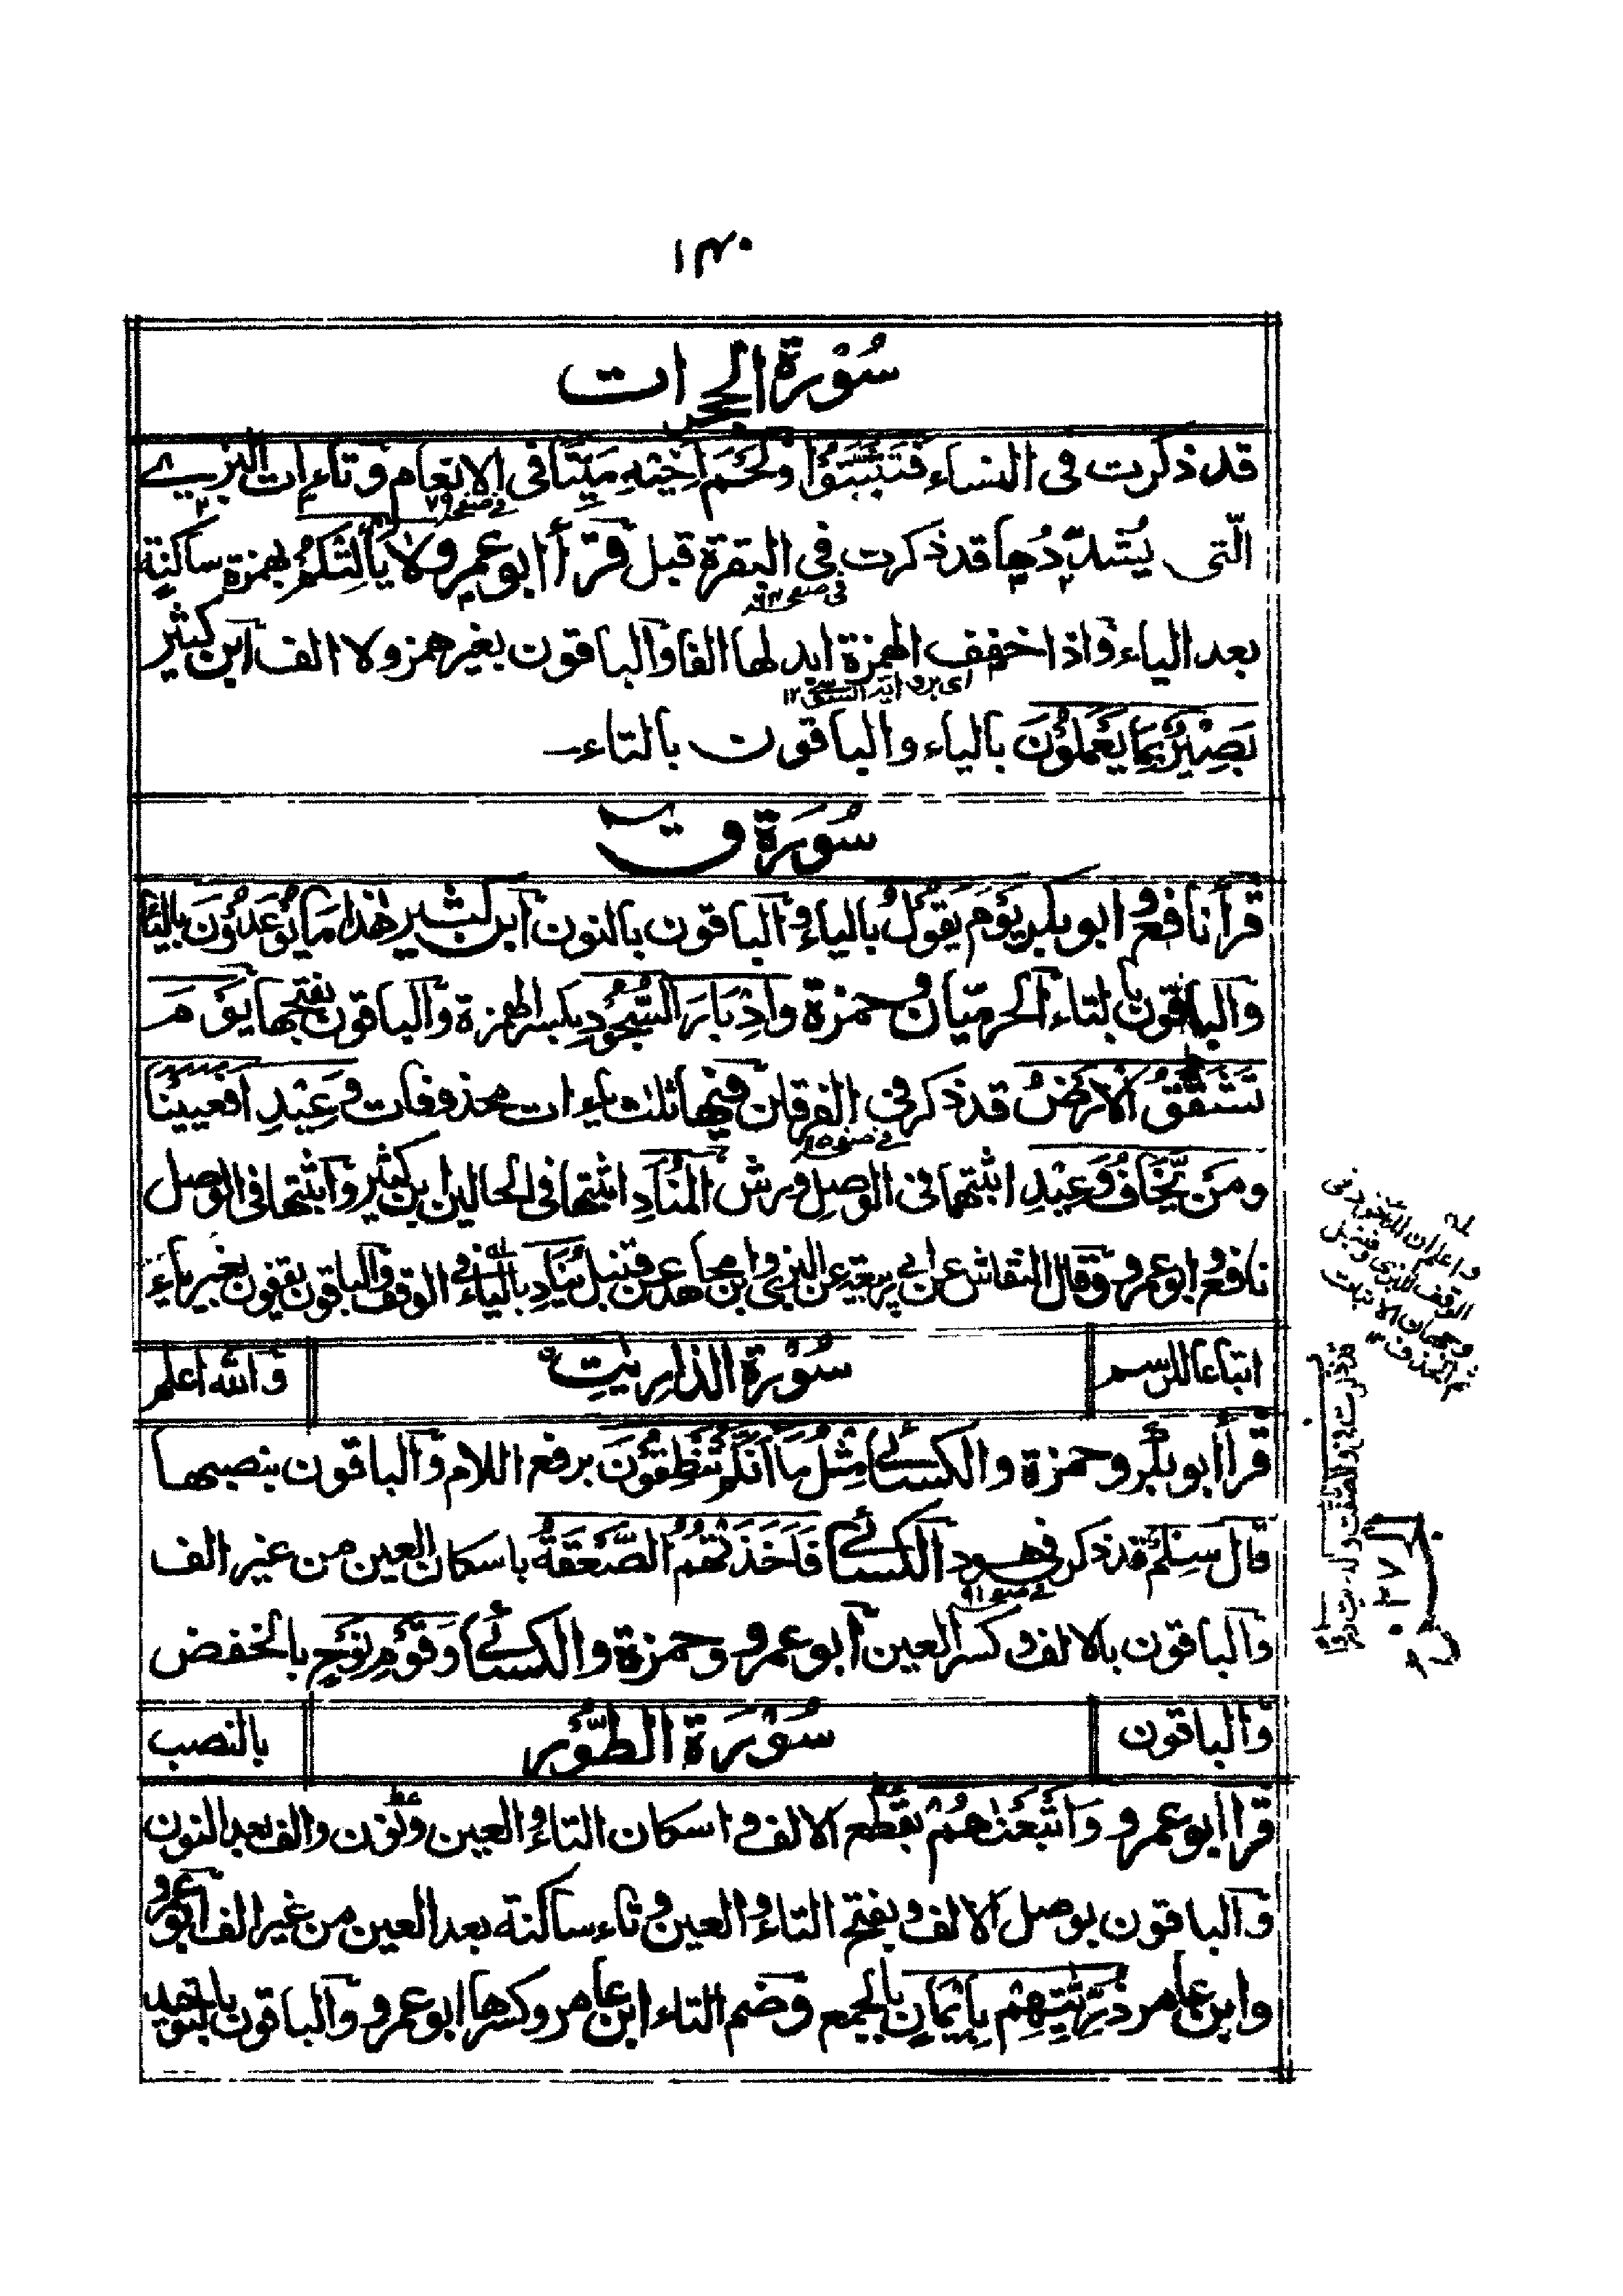 ١٣٠
سُوْرَة الحجرات
قد ذكرت فى النساء فَتَبَيَّنُوْا ولَحْمَ اَخِيْهِ مَيْتًا فى الانعام وتاءات البزى
فى صفحه ٧٩
الّتى يُشدِّدُها قد ذكرت فى البقرة قبل قرأ ابو عمرو لا يَأْلِتْكُمْ بهمزة ساكنة
فى صفحه
بعد الياء واذا خفف الهمزة ابدلها الفا والباقون بغير همز ولا الف ابن كثير
١٢
بَصِيْرٌ بِمَا يَعْمَلُوْنَ بالياء والباقون بالتاء
سُورَة ق
قرأ نافع وابو بكر يَوْمَ يَقُوْلُ بالياء والباقون بالنون ابن كثير هٰذَا مَا يُوْعَدُوْنَ بالياء
والباقون بالتاء الحرميّان وحمزة وَاِدْبَارَ السُّجُوْدِ بكسر الهمزة والباقون بفتحها يَوْمَ
تَشَقَّقُ الْاَرْضُ قد ذكر فى الفرقان فيها ثلث ياءات محذوفات وَعِيْدِ اَفَعَيِيْنَا
فى صفحه
ومَنْ يَّخَافُ وَعِيْدِ اثبتها فى الوصل ورش الْمُنَادِ اثبتها فى الحالين ابن كثير واثبتها فى الوصل
نافع وابو عمرو وقال النقاش عن ابى ربيعة عن البزى وابن مجاهد عن قنبل يُنَادِ بالياء فى الوقف والباقون يقفون بغير ياء
اتباعا للرسم
سُوْرَة الذارِيٰتِ
والله اعلم
قرأ أبو بكر وحمزة والكسائى مِثْلُ مَا اَنَّكُمْ تَنْطِقُوْنَ برفع اللام والباقون بنصبها
قال سِلْمٌ قد ذكر فى هود الكسائى فَاَخَذَتْهُمُ الصَّعْقَةُ باسكان العين من غير الف
فى صفحه ٩١
والباقون بالالف وكسر العين ابو عمرو وحمزة والكسائى وَقَوْمِ نُوْحٍ بالخفض
والباقون
سُوْرَة الطُّوْر
بالنصب
قرأ ابو عمرو وَاَتْبَعْنٰهُمْ بقطع الالف واسكان التاء والعين ونون والف بعد النون
والباقون بوصل الالف وبفتح التاء والعين وتاء ساكنة بعد العين من غير الف ابو عمرو
وابن عامر ذُرِّيّٰتِهِمْ بِاِيْمَانٍ بالجمع وضم التاء ابن عامر وكسرها ابو عمرو والباقون بالتوحيد